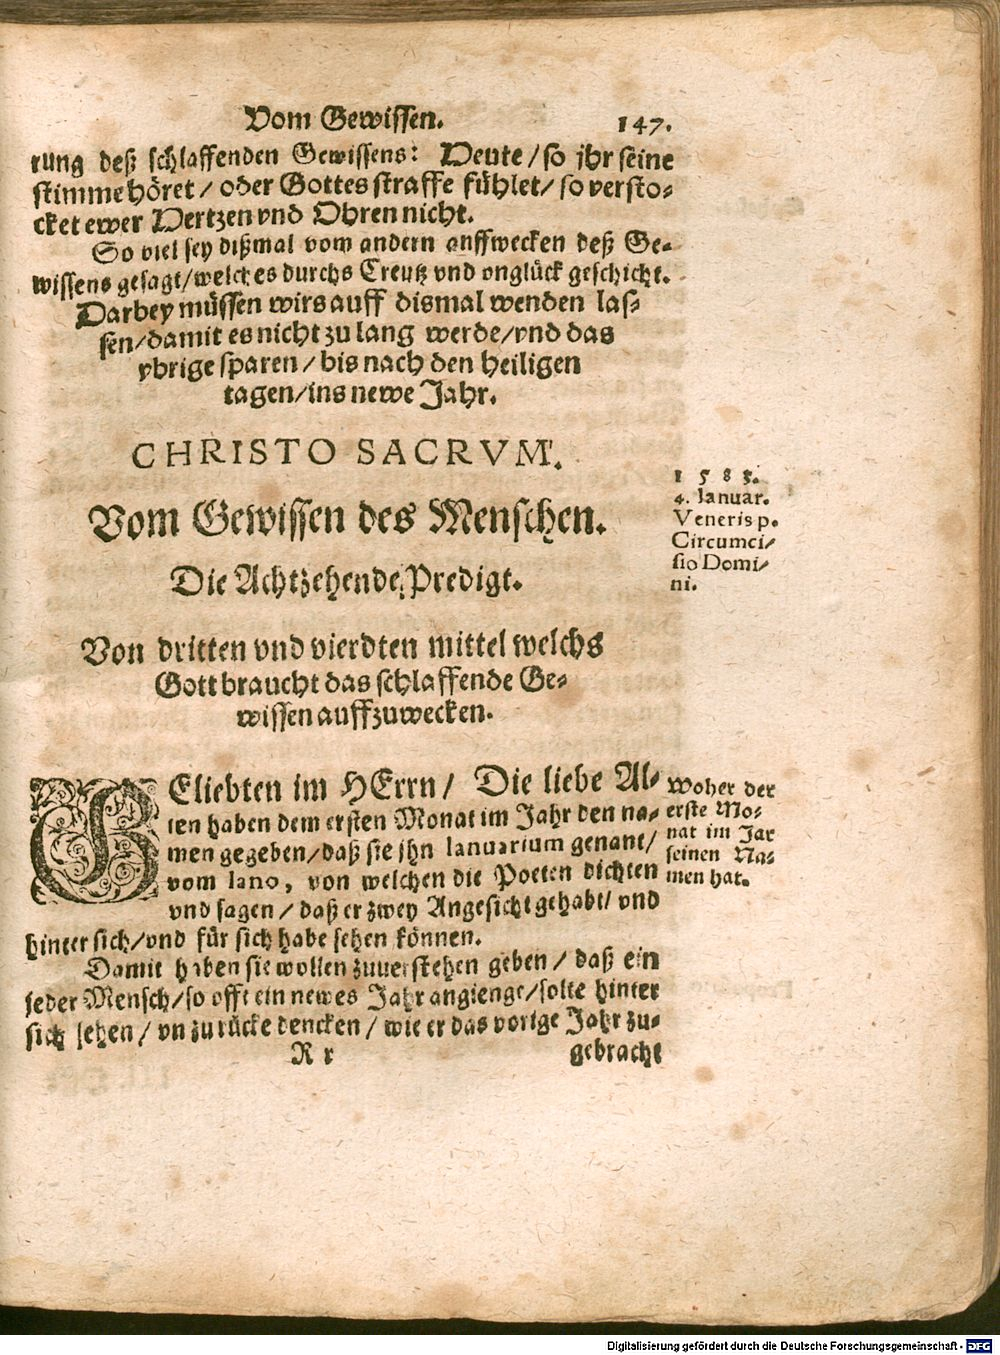 Vom Gewissen. 147.
rung deß schlaffenden Gewissens: Heute / so jhr seine
stimme höret / oder Gottes straffe fühlet / so versto-
cket ewer Hertzen vnd Ohren nicht.
So viel sey dißmal vom andern auffwecken deß Ge-
wissens gesagt / welches durchs Creutz vnd vnglück geschicht.
Darbey müssen wirs auff dismal wenden las-
sen / damit es nicht zu lang werde / vnd das
vbrige sparen / bis nach den heiligen
tagen / ins newe Jahr.
CHRISTO SACRVM.
Vom Gewissen des Menschen.
Die Achtzehende Predigt.
Von dritten vnd vierdten mittel welchs
Gott braucht das schlaffende Ge-
wissen auffzuwecken.
1583.
4. Ianuar.
Veneris p.
Circumci-
sio Domi-
ni.
GEliebten im HErrn / Die liebe Al-
ten haben dem ersten Monat im Jahr den na-
men gegeben / daß sie jhn Ianuarium genant /
vom Iano, von welchen die Poeten dichten
vnd sagen / daß er zwey Angesicht gehabt / vnd
hinter sich / vnd für sich habe sehen können.
Damit haben sie wollen zuuerstehen geben / daß ein
jeder Mensch / so offt ein newes Jahr angienge / solte hinter
sich sehen / vn zu rücke dencken / wie er das vorige Jahr zu-
Woher der
erste Mo-
nat im Jar
seinen Na-
men hat.
R r gebracht
Digitalisierung gefördert durch die Deutsche Forschungsgemeinschaft - DFG